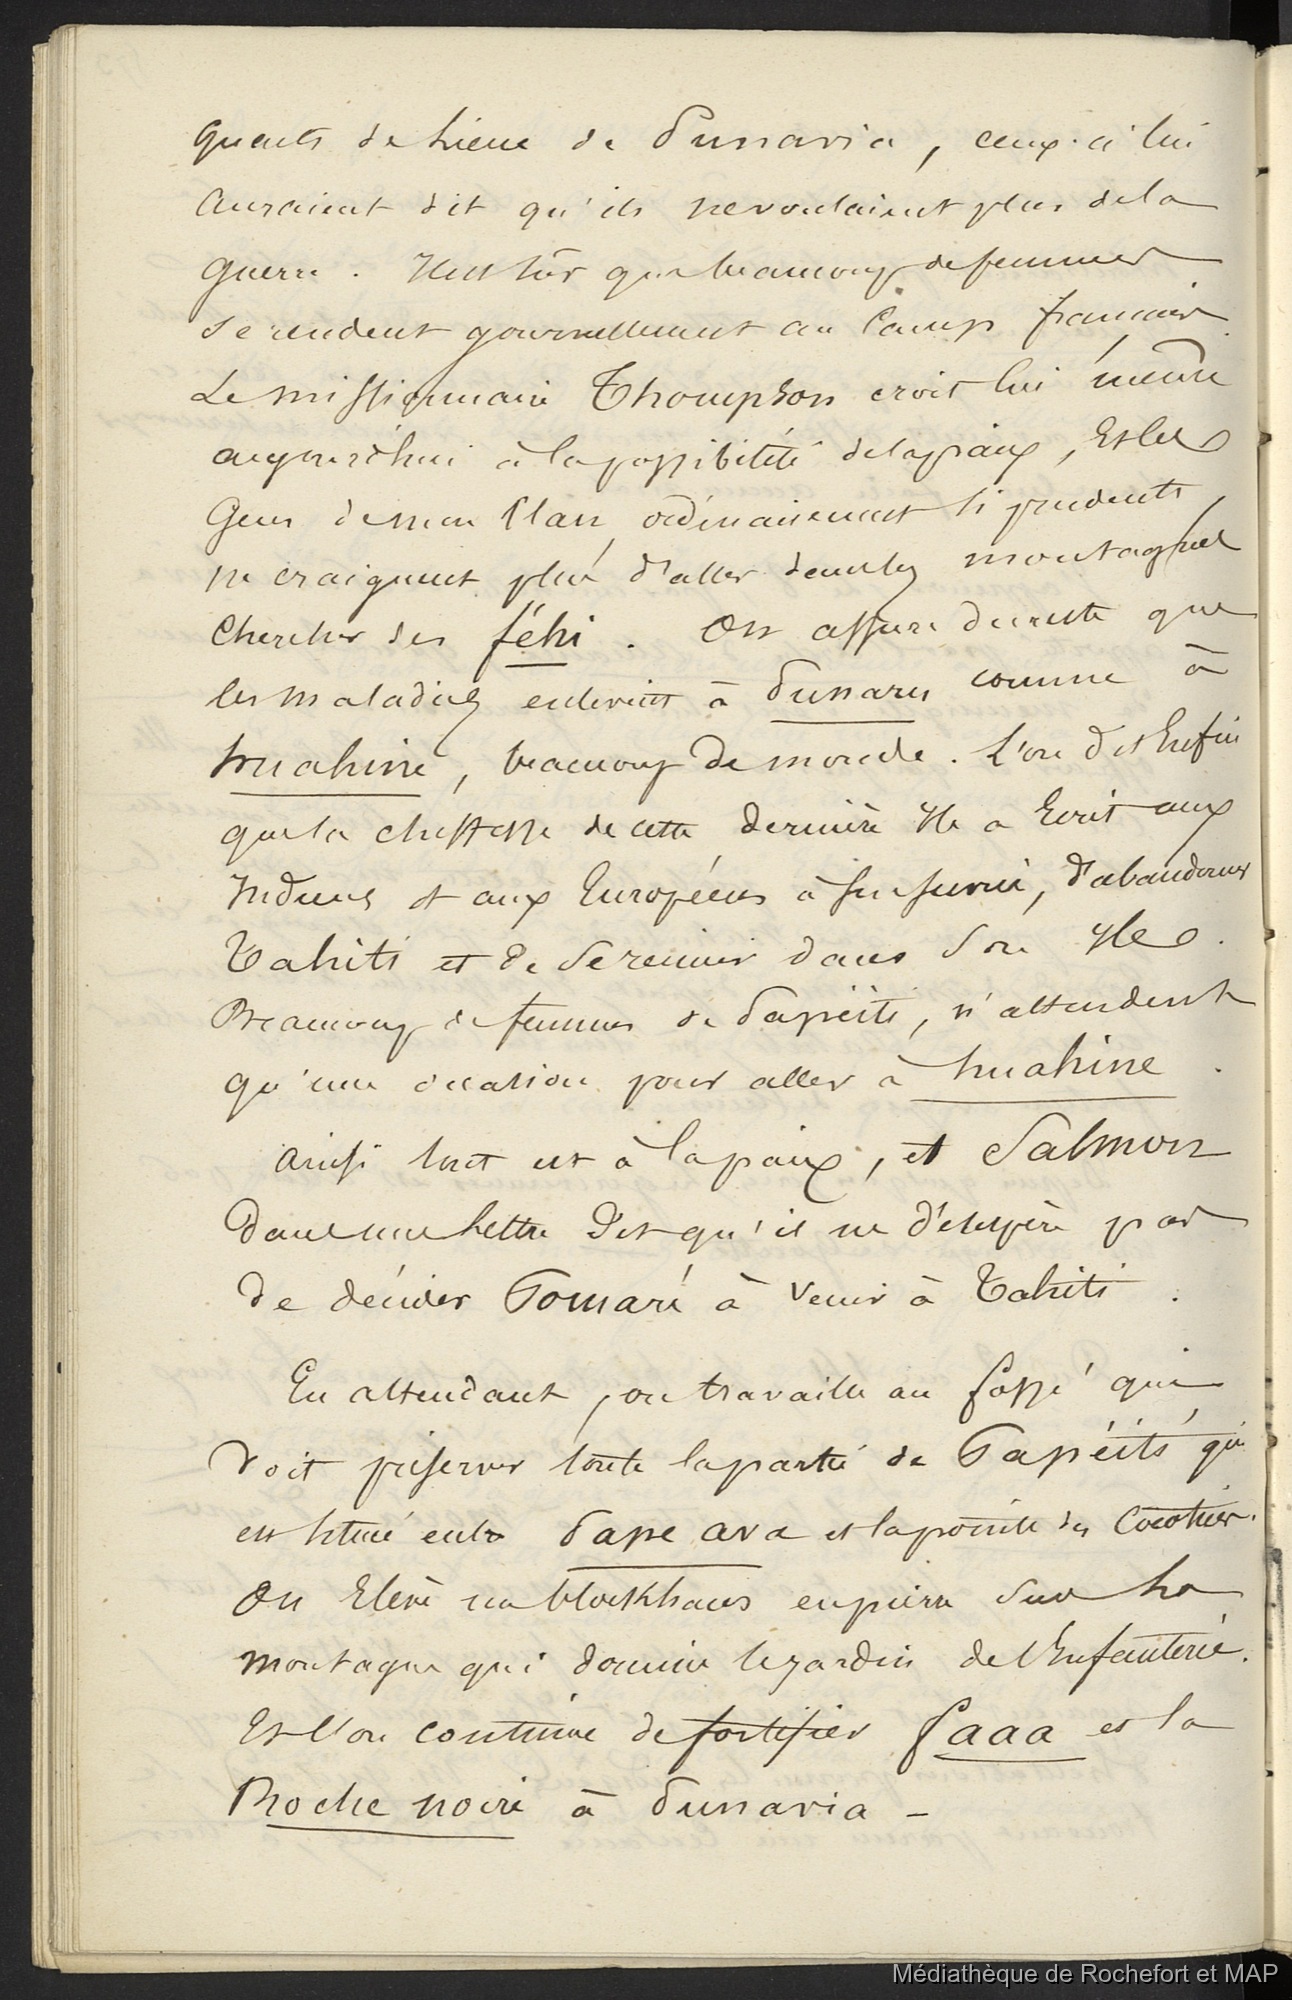 quarts de lieue de Punavia, ceux-ci lui
auraient dit qu'ils ne voulaient plus de la
guerre. Il est sûr que beaucoup de femmes
se rendent journellement au Camp français.
Le missionnaire Thompson croit lui même
aujourd'hui à la possibilité de la paix, Et les
Gens de mon Clan, ordinairement si prudents,
ne craignent plus d'aller dans les montagnes
chercher des féhi. On assure du reste que
les maladies enlèvent à Punaru comme à
huahine, beaucoup de monde. L'on dit Enfin
que la cheffesse de cette dernière Ile a Ecrit aux
Indiens et aux Européens à , d'abandonner
Tahiti et de se réunir dans son Ile.
Beaucoup de femmes de Papéiti, n'attendent
qu'une occasion pour aller à huahine.
Ainsi tout est à la paix, et Salmon
dans une lettre dit qu'il ne désespère pas
de décider Pomaré à venir à Tahiti.
En attendant, on travaille au fossé qui
doit préserver toute la partie de Papéiti qui
est située entre Pape ava et la pointe des Cocotiers.
On Elève un blockhaus en pierre sur la
montagne qui domine le jardin de l'Infanterie.
Et l'on continue de fortifier faaa et la
Roche noire à Punavia -
Médiathèque de Rochefort et MAP